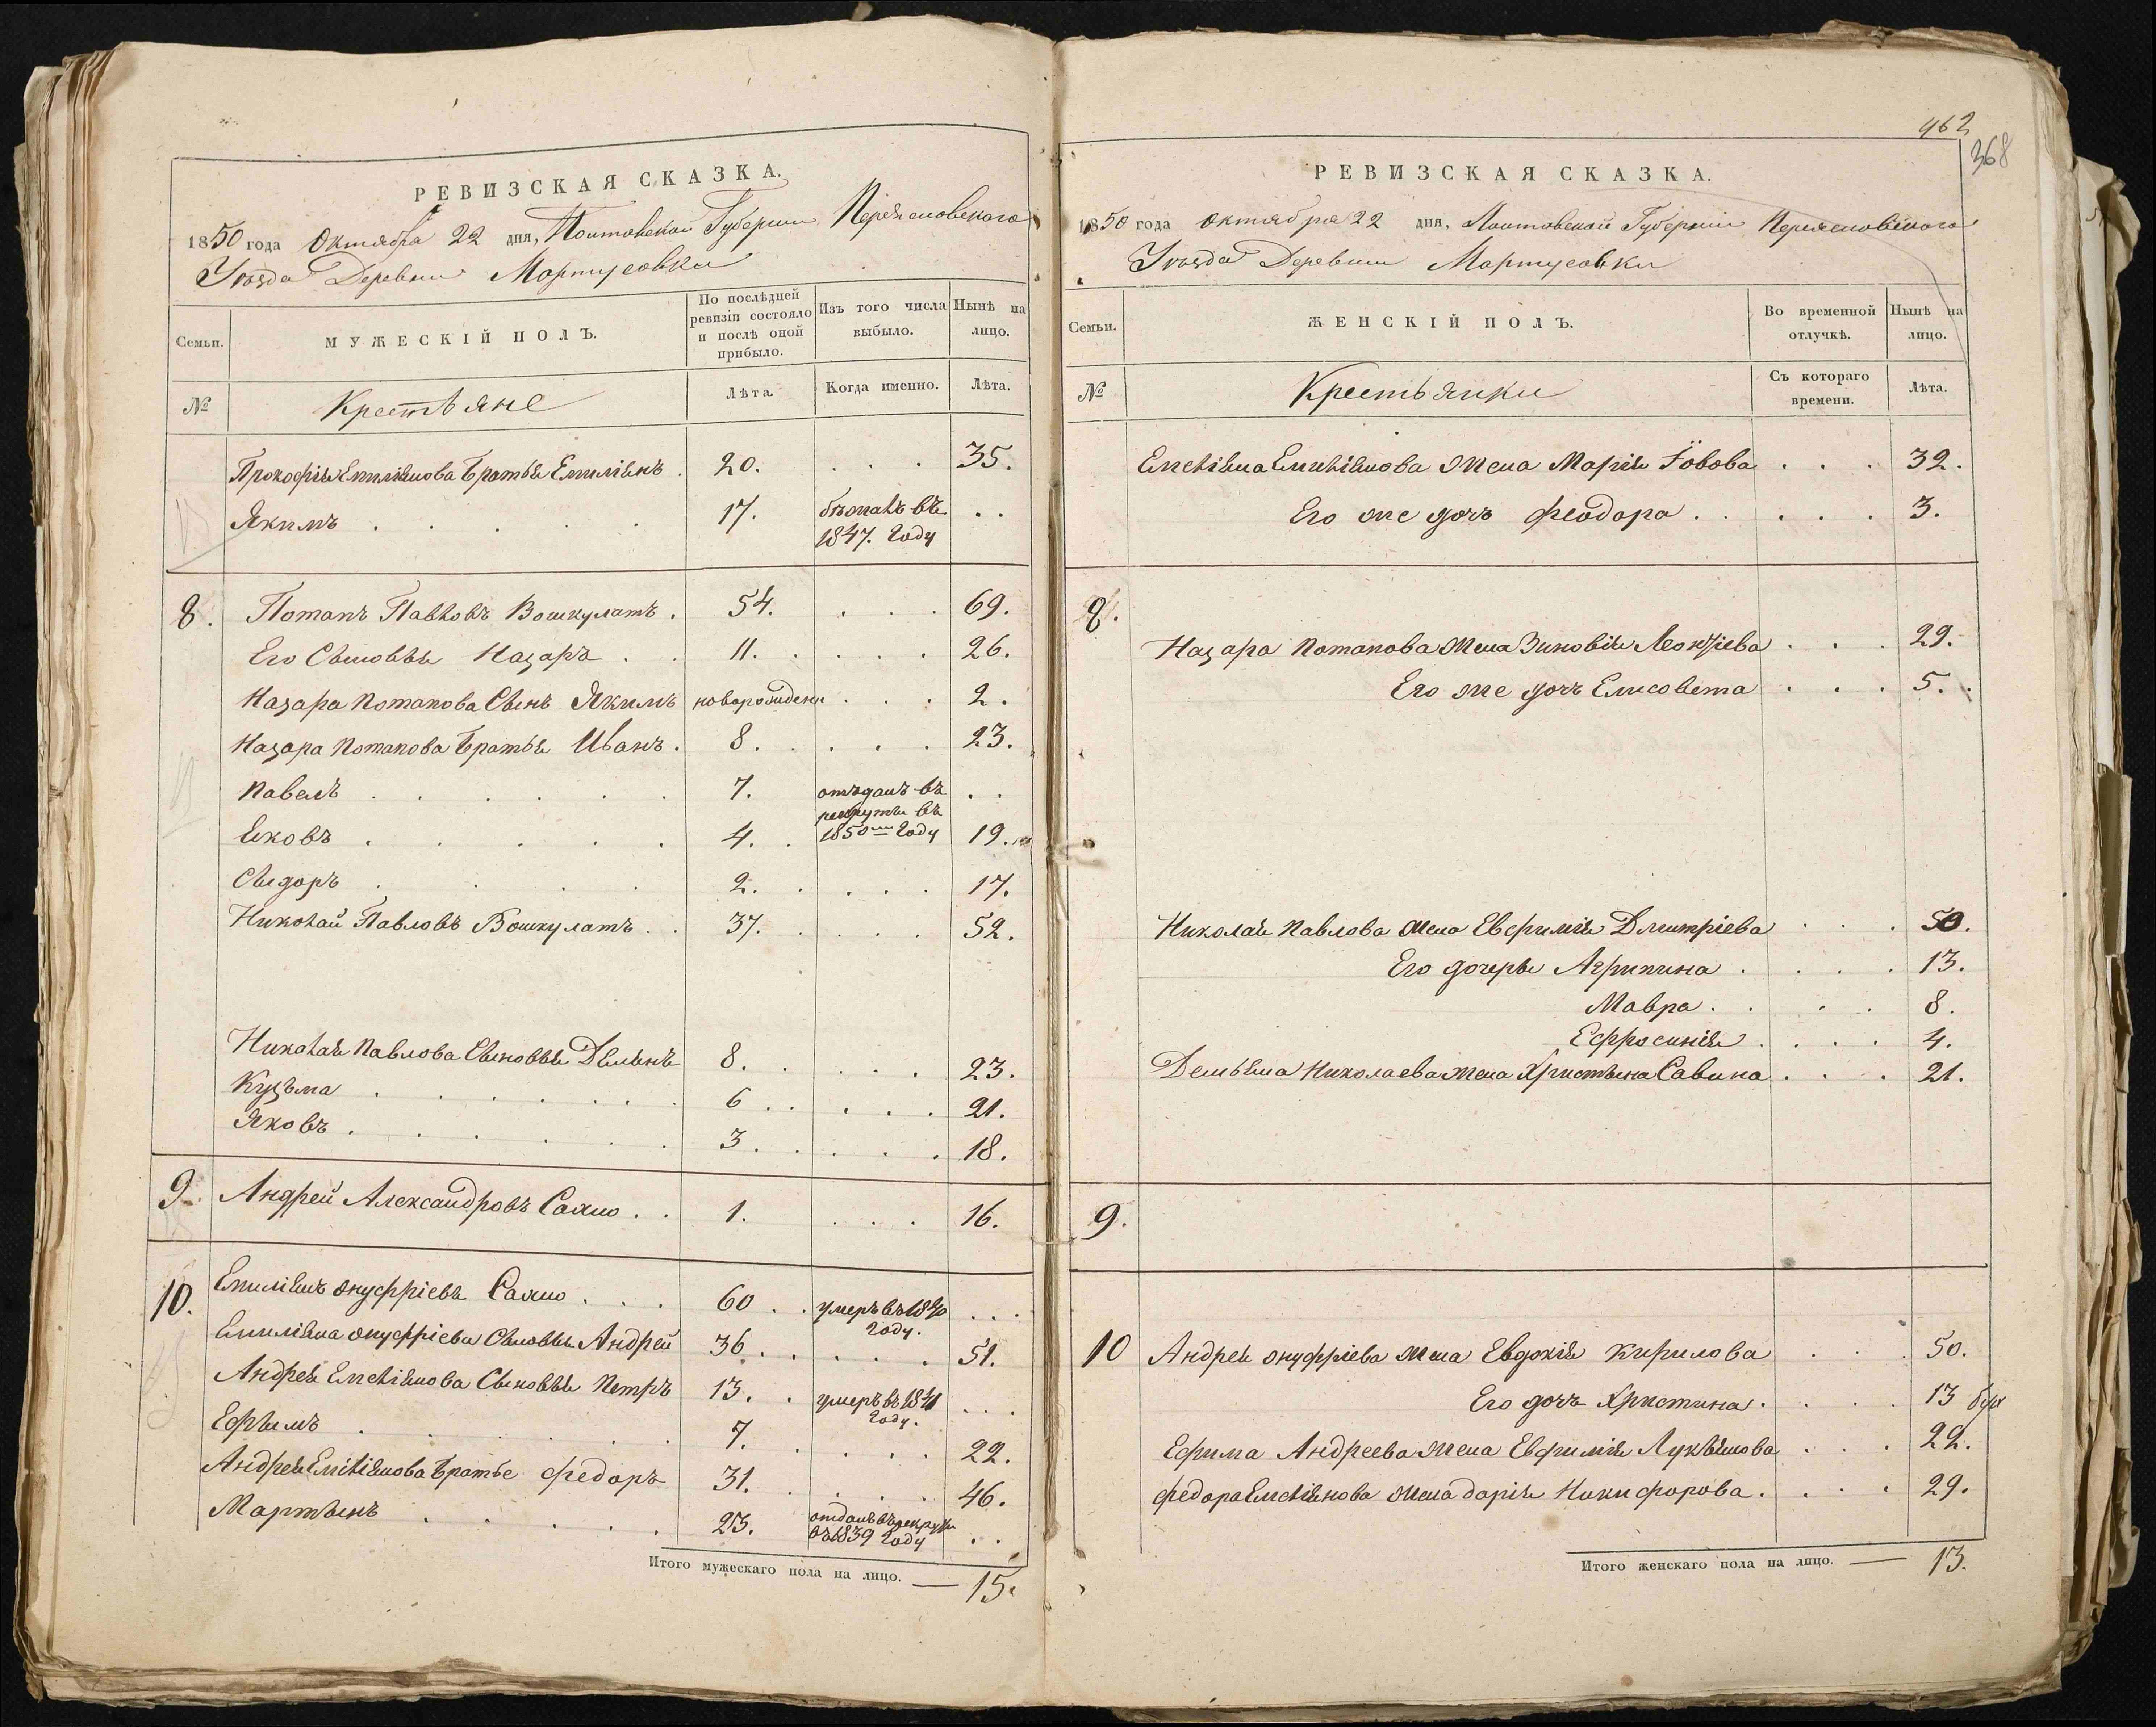 РЕВИЗСКАЯ СКАЗКА.
1850 года Октября 22 дня, Полтавской Губернии Переяславского
Уезда Деревни Мартусовки
Семьи.
МУЖЕСКІЙ ПОЛЪ.
По послѣдней ревизіи состояло и послѣ оной прибыло.
Изъ того числа выбыло.
Нынѣ на лицо.
№
Крестьяне
Лѣта.
Когда именно.
Лѣта.
Прокофія Емиліянова Братья Емиліянъ . 20. . . . 35.
Якимъ . . . . . 17. бѣжалъ въ 1847. Году . .
8. Потапъ Павловъ Вошкулатъ . 54. . . . 69.
Его Сыновья Назаръ . . 11. . . . . 26.
Назара Потапова Сынъ Якимъ новорожденъ . . . 2.
Назара Потапова Братья Иванъ . 8. . . . . 23.
Павелъ . . . . . . 7. отъданъ въ рекруты въ 1850 Году . .
Яковъ . . . . . 4. . 19.
Сыдоръ . . . . 2. . . . . 17.
Николай Павловъ Вошкулатъ . . 37. . . . . 52.
Николая Павлова Сыновья Демьянъ 8. . . . . 23.
Кузьма . . . . . . . 6 . . . . . 21.
Яковъ . . . . . . 3. . . . . 18.
9. Андрей Александровъ Сахно . . 1. . . . 16.
10. Емиліянъ Онуфріевъ Сахно . . . 60 . . умеръ въ 1840 Году. . . .
Емиліяна Онуфріева Сыновья Андрей 36 . . . . . 51.
Андрея Емеліянова Сыновья Петръ 13. . умеръ въ 1841 Году. . . .
Ефымъ . . . . . . 7. . . . . 22.
Андрея Емиліянова Братье Федоръ 31. . . . . 46.
Мартынъ . . . . . 23. отданъ въ рекруты въ 1839 Году . .
Итого мужескаго пола на лицо. — 15.
462
368
РЕВИЗСКАЯ СКАЗКА.
1850 года Октября 22 дня, Полтавской Губерніи Переяславского
Уезда Деревни Мартусовки
Семьи.
ЖЕНСКІЙ ПОЛЪ.
Во временной отлучкѣ.
Нынѣ на лицо.
№
Крестьянки
Съ котораго времени.
Лѣта.
Емеліяна Емиліянова Жена Марія Іовова . . . 32.
Его же дочъ Феодора . . . . . 3.
8.
Назара Потапова Жена Зиновія Леонтіева . . . 29.
Его же дочъ Елисовета . . . 5.
Николая Павлова Жена Евфимія Дмитріева . . . 50.
Его дочеры Агрипина . . . . 13.
Мавра . . . . 8.
Ефросинія . . . . 4.
Демьяна Николаева Жена Христына Савина . . . 21.
9.
10 Андрея Онуфріева Жена Евдокія Кирилова . . . 50.
Его дочъ Христина . . . . 13
Ефима Андреева Жена Евфимія Лукьянова . . . 22.
Федора Емеліянова Жена Дарія Никифорова . . . . 29.
Итого женскаго пола на лицо. — 13.